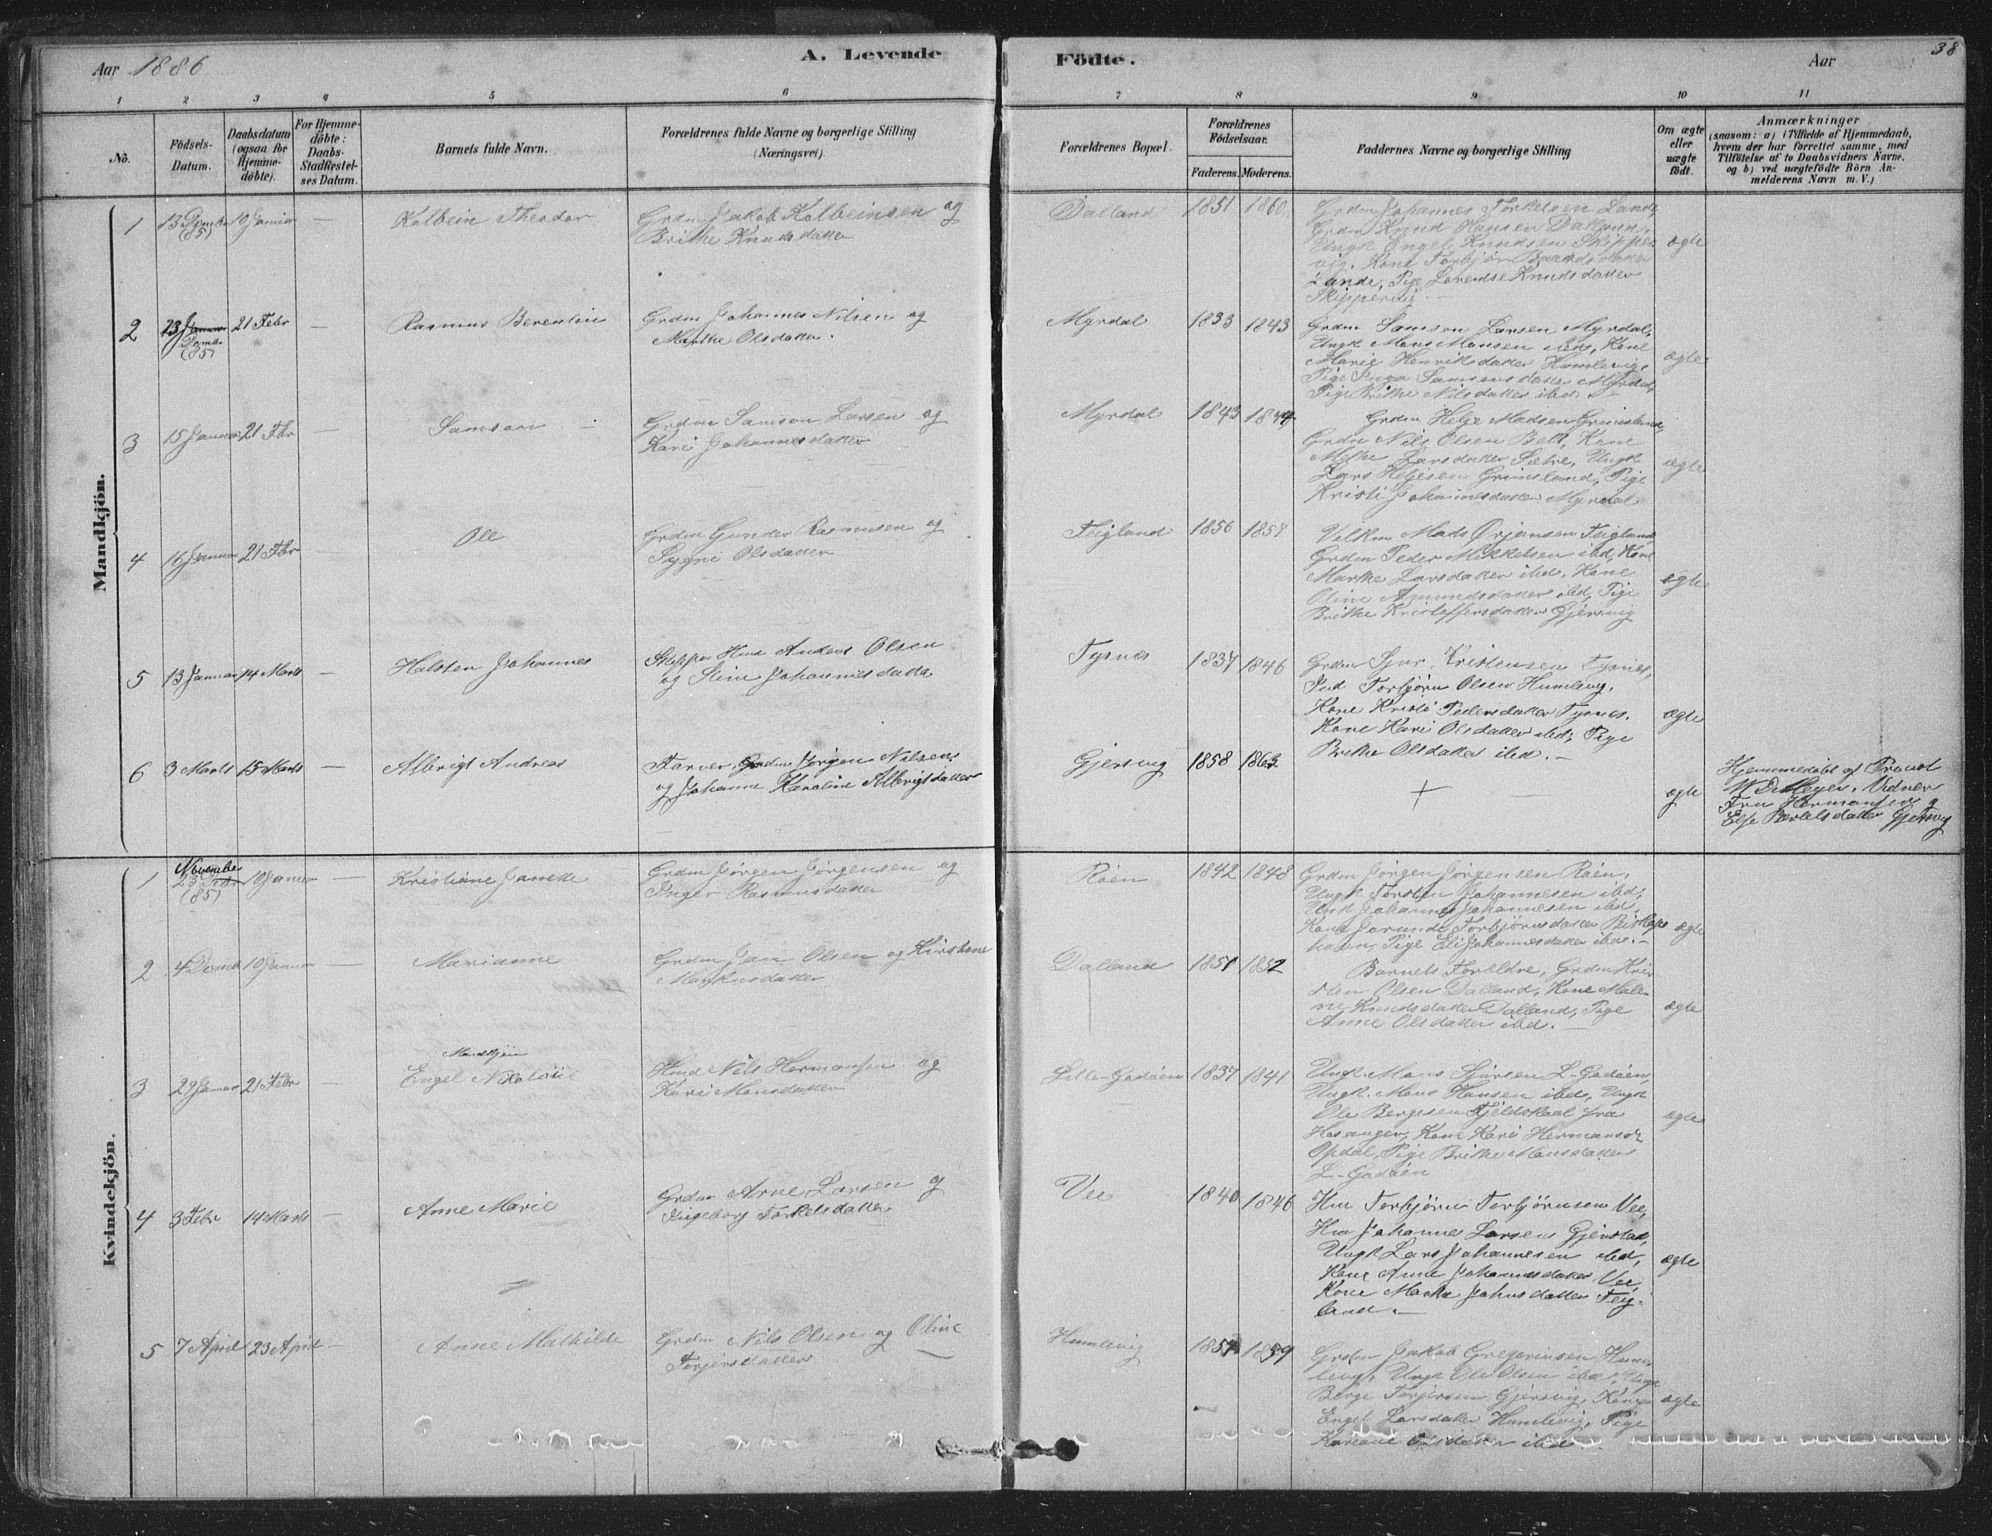 Aar 1886
A. Levende
Födte.
Aar
38
1 2 3 4 5 6 7 8 9 10 11
No.
Födsels-
Datum.
Daabsdatum
(ogsaa for
Hjemme-
döbte).
For Hjemme-
döbte:
Daabs-
Stadfæstel-
ses Datum.
Barnets fulde Navn.
Forældrenes fulde Navne og borgerlige Stilling
(Næringsvei).
Forældrenes Bopæl.
Forældrenes
Födselsaar.
Faderens. Moderens.
Faddernes Navne og borgerlige Stilling
Om ægte
eller
uægte
födt.
Anmærkninger
(saasom: a) i Tilfælde af Hjemmedaab,
hvem der har forrettet samme, med
Tilföielse af to Daabsvidners Navne,
og b) ved uægtefödte Börn An-
melderens Navn m. V.)
Mandkjön.
1 13 Dcmbr (85) 10 Januar — Kolbein Theodor
Grdm Jakob Kolbeinsen og
Brithe Knudsdatter
Dalland 1851 1860
Grdm Johannes Torkelsen Lande,
Grdm Knud Hansen Dalland,
Ungk Engel Knudsen Skipper
vig, Kone Torbjör Baardsdatter
Lande, Pige Lorentse Knudsdatter
Skippervig. —
ægte
2 23 Januar Dcmbr (85) 21 Febr — Rasmus Berentin
Grdm Johannes Nilsen og
Marthe Olsdatter.
Myrdal 1833 1843
Grdm Samson Larsen Myrdal,
Ungk Mons Monsen ibd, Kone
Marie Henriksdatter Humlevig,
Pige Inga Samsonsdatter Myrdal,
Pige Brithe Nilsdatter ibd. —
ægte
3 15 Januar 21 Fbr — Samson —
Grdm Samson Larsen og
Kari Johannesdatter
Myrdal 1843 1844
Grdm Helje Madsen Grimsland,
Grdm Nils Olsen Bell, Kone
Larsdatter Sætre, Ungk
Lars Heljesen Grimsland, Pige
Kristi Johannesdatter Myrdal
ægte
4 16 Januar 21 Fbr — Ole
Grdm Gunder Rasmusen og
Sygne Olsdatter
Teigland 1856 1857
Mads Örjansen Teigland
Grdm Peder Mikkelsen ibd, Kone
Marthe Larsdatter ibd, Kone
Oline Amundsdatter ibd, Pige
Brithe Kristoffersdatter Gjersvig
ægte
5 13 Januar 14 Marts — Halsten Johannes
Anders Olsen
og Stine Johannesdatter
Tysnes 1837 1846
Grdm Sjur Kristensen Tysnes,
Ind Torbjörn Olsen Humlevig,
Kone Kristi Pedersdatter Tysnes,
Kone Kari Olsdatter ibd, Pige
Brithe Olsdatter ibd. —
ægte
6 3 Marts 15 Marts — Albrigt Andreas
Farver, Grdm Jörgen Nilsen
og Johanne Karoline Albrigtsdatter
Gjersvig 1858 1863
+ —
ægte
Hjemmedöbt af Provst
W D Meyer, Vidner
Fru Hermansen og
Else Bertelsdatter Gjersvig
Kvindekjön.
1 November 23 Febr (85) 10 Januar — Kristiane Janette
Grdm Jörgen Jörgensen og
Inger Rasmusdatter
Röen 1842 1848
Grdm Jörgen Jörgensen Röen,
Ungk Torsten Johannesen ibd,
Ungk Johannes Johannesen ibd,
Kone Jorunde Torbjörnsdatter Biskops
havn, Pige Eli Johannesdatter ibd. —
ægte
2 4 Dcmbr 10 Januar — Marianne
Grdm Jan Olsen og Kirstine
Markusdatter
Dalland 1851 1852
Barnets Foreldre, Grdm Kris
ten Olsen Dalland, Kone Male-
ne Knudsdatter Dalland, Pige
Anne Olsdatter ibd. —
ægte
3 29 Januar 21 Febr —
Mandkjön
Engel Nikolai
Hmd Nils Hermansen og
Kari Monsdatter
Lille-Godöen 1837 1841
Ungk Mons Sjursen L-Godöen,
Ungk. Mons Hansen ibd, Ungk
Ole Bergesen Fjeldskaal fra
Hosanger, Kone Kari Hermansdr
Opdal, Pige Brithe Monsdatter
L-Godöen
ægte
4 3 Febr 14 Marts — Anne Marie
Grdm Arne Larsen og
Ingeborg Torkelsdatter
Vee 1840 1846
Hm Torbjörn Torbjörnsen Vee,
Hm Johannes Larsen Gjerstad,
Ungk Lars Johannesen ibd,
Kone Anne Johannesdatter Vee,
Kone Marthe Johnsdatter Teig-
land. —
ægte
5 7 April 23 April — Anne Mathilde
Grdm Nils Olsen og Oline
Torjersdatter
Humlevig 1857 1859
Grdm Jakob Gregoriusen Hum-
levig, Ungk Ole Olsen ibd, Ungk
Börge Torjersen Gjersvig, Kone
Engel Larsdatter Humlevig, Pige
Olsdatter ibd
ægte